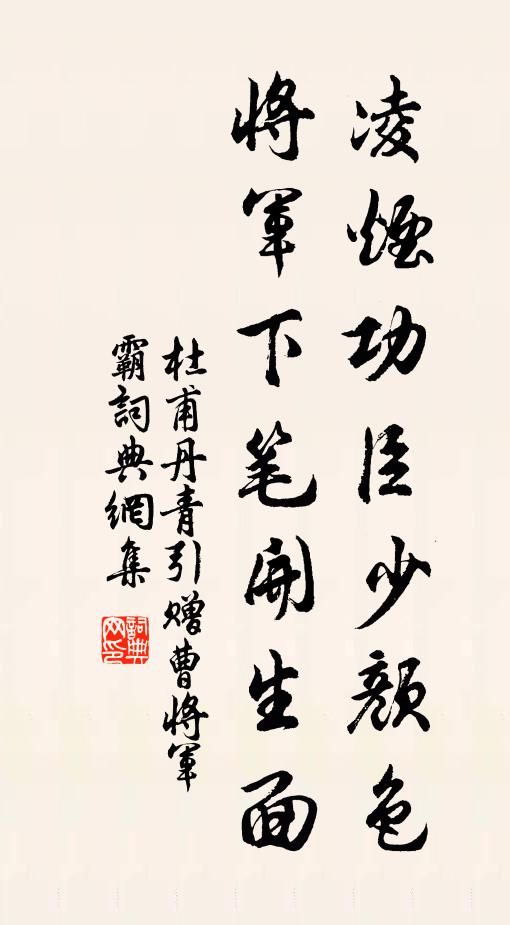 凌煙功臣少顔色
將軍下笔開生面
杜甫丹青引赠曹將軍
霸詞典網集
詞典
网印